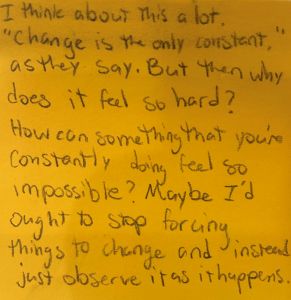 I think about this a lot.
"Change is the only constant,"
as they say. But then why
does it feel so hard?
How can something that you're
constantly doing feel so
impossible? Maybe I'd
ought to stop forcing
things to change and instead
just observe it as it happens.